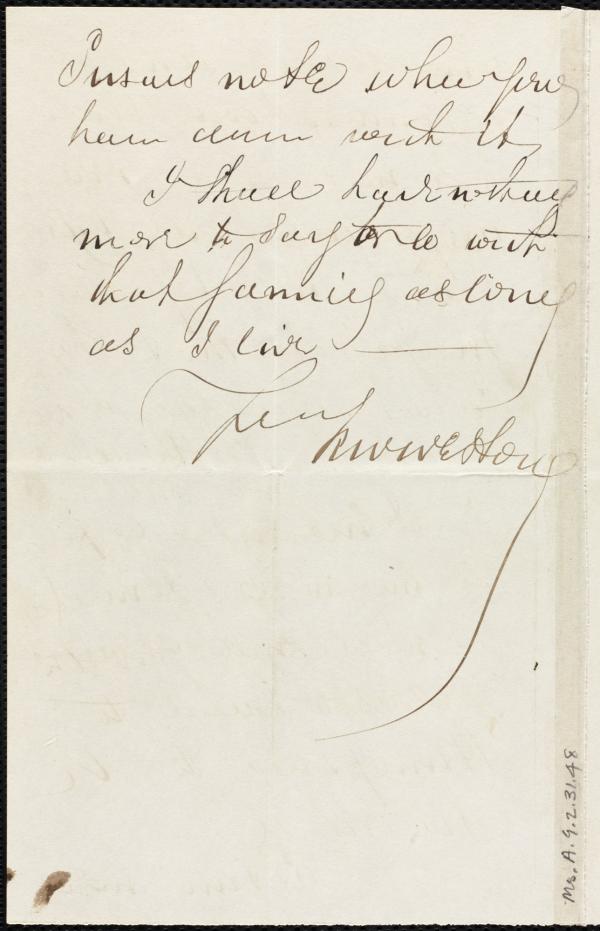 note when you
have done with it
I shall have nothing
more to say to or do with
that family as long
as I live
R W Weston
Ms. A. 9. 2. 31. 48